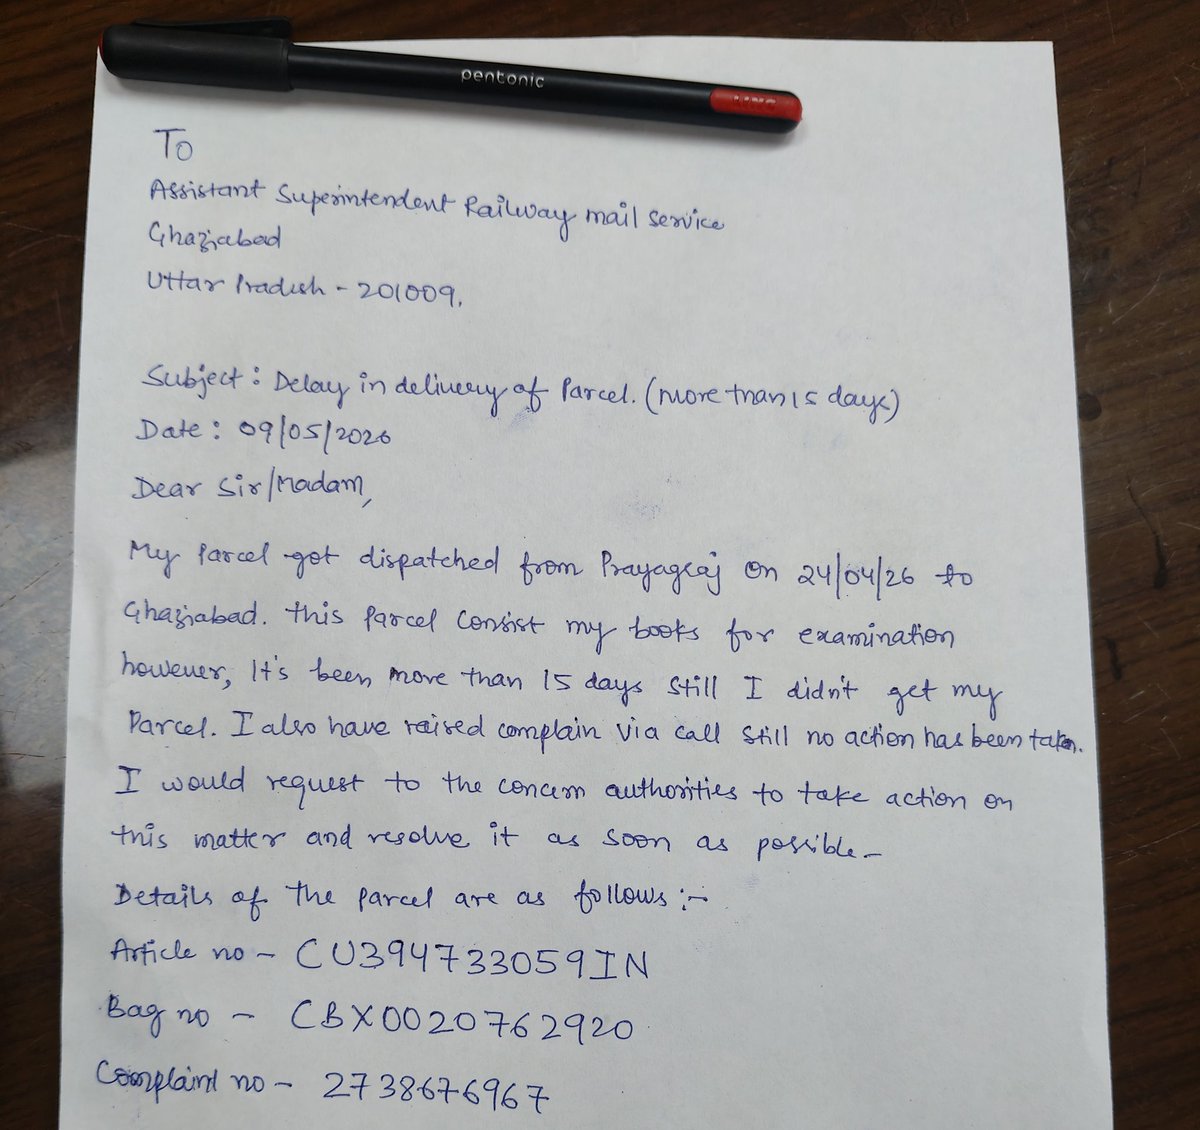 pentonic
LINC
To
Assistant Superintendent Railway mail service
Ghaziabad
Uttar Pradesh - 201009.
Subject : Delay in delivery of Parcel. (more than 15 days)
Date : 09/05/2026
Dear Sir/Madam,
My Parcel got dispatched from Prayagraj on 24/04/26 to
Ghaziabad. this parcel consist my books for examination
however, It's been more than 15 days still I didn't get my
Parcel. I also have raised complain via call still no action has been taken.
I would request to the concern authorities to take action on
this matter and resolve it as soon as possible-
Details of the parcel are as follows :-
Article no - CU394733059IN
Bag no - CBX0020762920
Complaint no - 2738676967